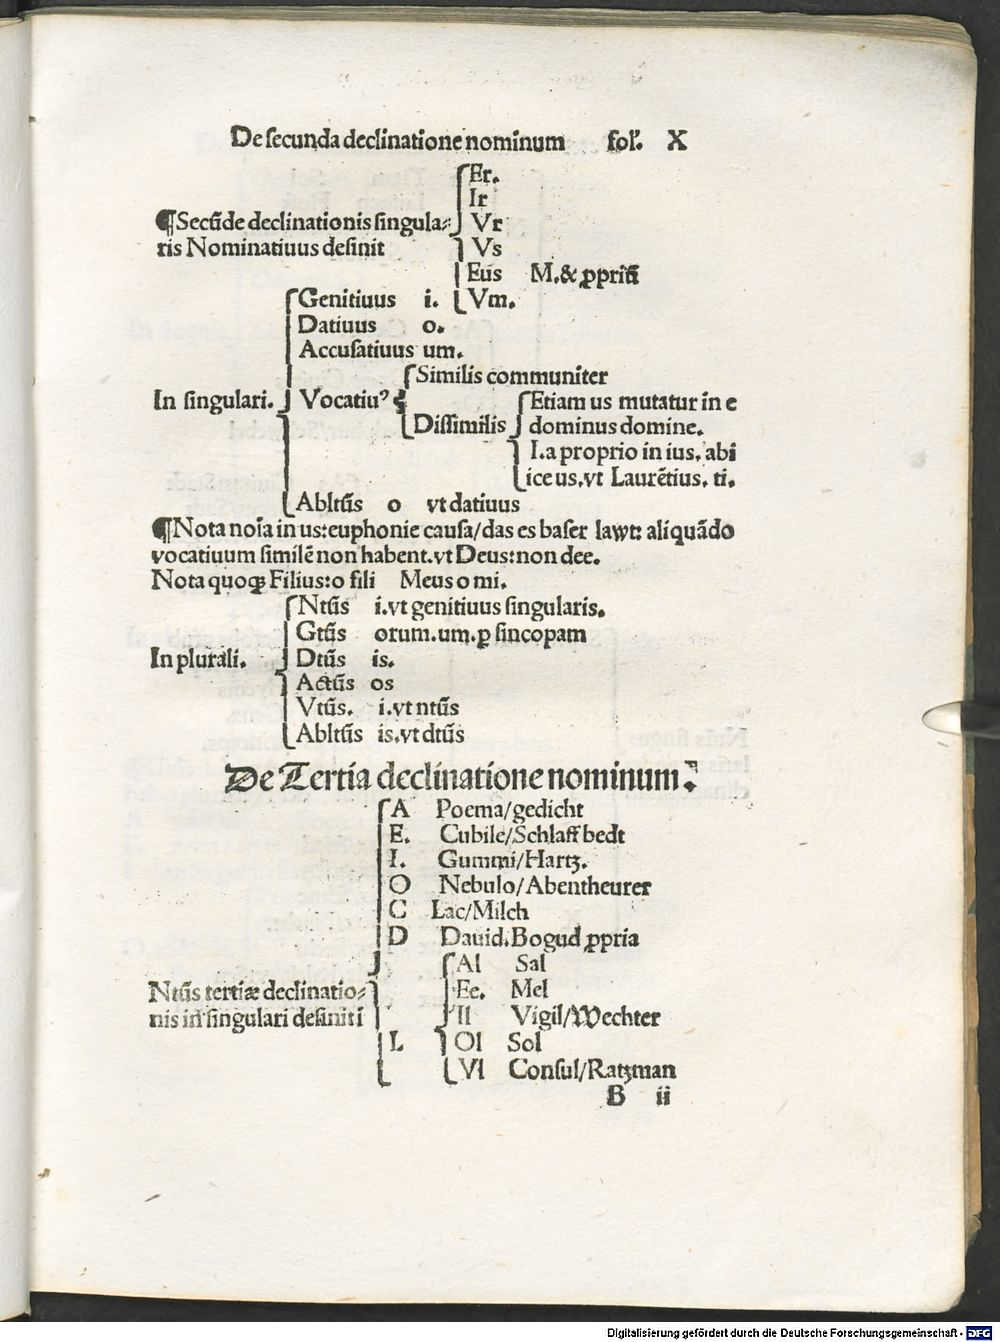 De secunda declinatione nominum fol'. X
Er.
Ir
¶Secūde declinationis singula⸗ Vr
ris Nominatiuus desinit Vs
Eus M.& ꝓpriū
Genitiuus i. Vm.
Datiuus o.
Accusatiuus um.
Similis communiter
In singulari. Vocatiuꝰ Etiam us mutatur in e
Dissimilis dominus domine.
I.a proprio in ius, abi
ice us,vt Laurētius, ti.
Abltūs o vt datiuus
¶Nota noīa in us:euphonie causa/das es baser lawt: aliquādo
vocatiuum similē non habent.vt Deus:non dee.
Nota quoqꝫ Filius:o fili Meus o mi.
Ntūs i.vt genitiuus singularis.
Gtūs orum.um.ꝑ sincopam
In plurali. Dtūs is.
Actūs os
Vtūs. i.vt ntūs
Abltūs is.vt dtūs
De Tertia declinatione nominum.
A Poema/gedicht
E. Cubile/Schlaff bedt
I. Gummi/Hartz.
O Nebulo/Abentheurer
C Lac/Milch
D Dauid.Bogud ꝓpria
Al Sal
Ntūs tertiæ declinatio⸗ Ee. Mel
nis in singulari desiniti Il Vigil/Wechter
L Ol Sol
Vl Consul/Ratzman
B ii
Digitalisierung gefördert durch die Deutsche Forschungsgemeinschaft - DFG